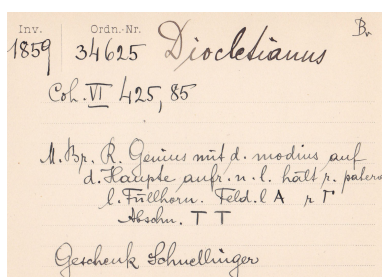 Inv. Ordn.-Nr. B.
1859 34625 Diocletianus
Coh. VI 425, 85
M. Br. R. Genius mit d. modius auf
d. Haupte aufr. n. l. hält r. patera
l. Füllhorn. Feld. l A r Γ
Abschn. T T
Geschenk Schnellinger